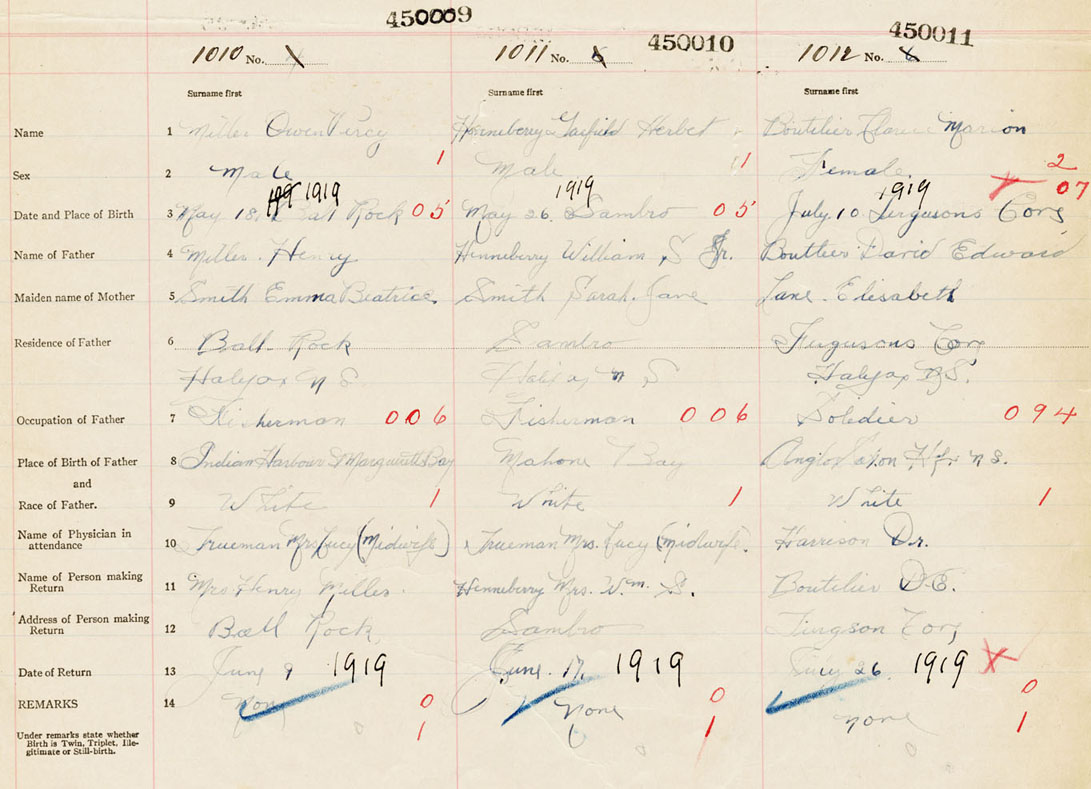 450009
450010
450011
1010 No.
1011 No. 8
1012 No. 8
Surname first
Surname first
Surname first
Name 1 Miller Owen Percy Henneberry Garfield Herbert Boutilier Marion
1 1 2
Sex 2 Male Male Female
1919 1919 1919 07
Date and Place of Birth 3 May 18 Rock 05 May 26. Sambro 05 July. 10 Fergusons Cove
Name of Father 4 Miller. Henry Henneberry William S Jr. Boutlier David Edward
Maiden name of Mother 5 Smith Emma Beatrice. Smith Sarah. Jane Lane. Elisabeth
Residence of Father 6 Ball Rock Sambro Fergusons Cove
Halifax N S Halifax N S Halifax N.S.
Occupation of Father 7 Fisherman 006 Fisherman 006 Soledier 094
Place of Birth of Father 8 Indian Harbour St Marguretts Bay Mahone Bay Anglo Saxon Hfx N S.
and
Race of Father. 9 White 1 White 1 White 1
Name of Physician in
attendance 10 Trueman Mrs Lucy (Midwife) Trueman Mrs. Lucy (Midwife). Harrison Dr.
Name of Person making
Return 11 Mrs Henry Miller. Henneberry Mrs. Wm. S. Boutilier D.E.
Address of Person making
Return 12 Ball Rock, Sambro Furgson Cove
Date of Return 13 June 9 1919 June. 17, 1919 July 26, 1919
REMARKS 14 None 0 None 0 none 0
1 1 1
Under remarks state whether
Birth is Twin, Triplet, Ille-
gitimate or Still-birth.